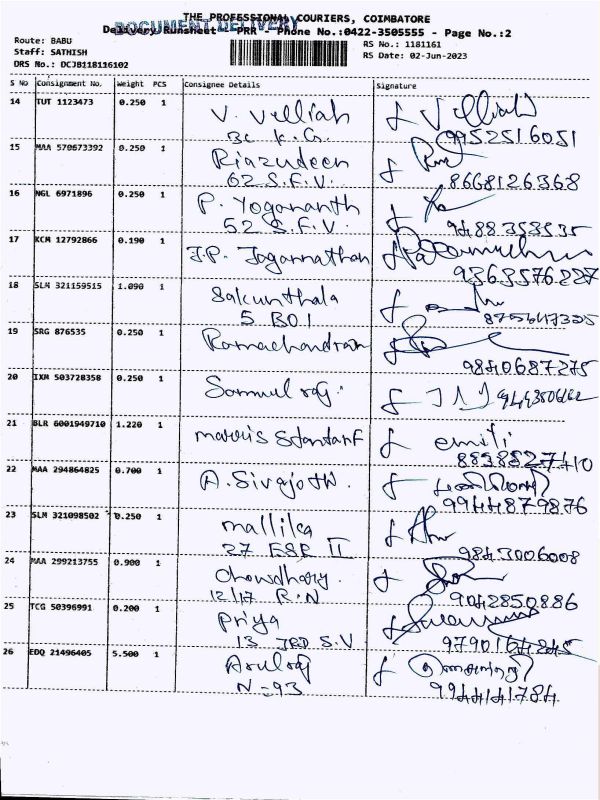 THE PROFESSIONAL COURIERS, COIMBATORE
DOCUMENT DELIVERY
Delivery Runsheet - PRR - Phone No.:0422-3505555 - Page No.:2
Route: BABU
RS No.: 1181161
Staff: SATHISH
RS Date: 02-Jun-2023
DRS No.: DCJB118116102
S No Consignment No. Weight PCS Consignee Details Signature
14 TUT 1123473 0.250 1 V. Velliah
3C K.G. 9952516051
15 MAA 570673392 0.250 1 Riazudeen
62 S.F.V. 8668126368
16 NGL 6971896 0.250 1 P. Yogananth
52 S.F.V. 9488353535
17 KCM 12792866 0.190 1 J.P. Jagannathan
9363576227
18 SLM 321159515 1.090 1 Sakunthala
5 BOI
19 SRG 876535 0.250 1 Ramachandran
9840687275
20 IXM 503728358 0.250 1 Samuel raj.
21 BLR 6001949710 1.220 1 emili
8838527410
22 MAA 294864825 0.700 1 A. Sivajothi.
9944879876
23 SLM 321098502 0.250 1 mallika
27 ESE II 9843006008
24 MAA 299213755 0.900 1 Chowdhary.
12/17 R.N 9042850886
25 TCG 50396991 0.200 1 Priya
13 JRD S.V 9790164245
26 EDQ 21496405 5.500 1 Arulraj
N-93 9944141784